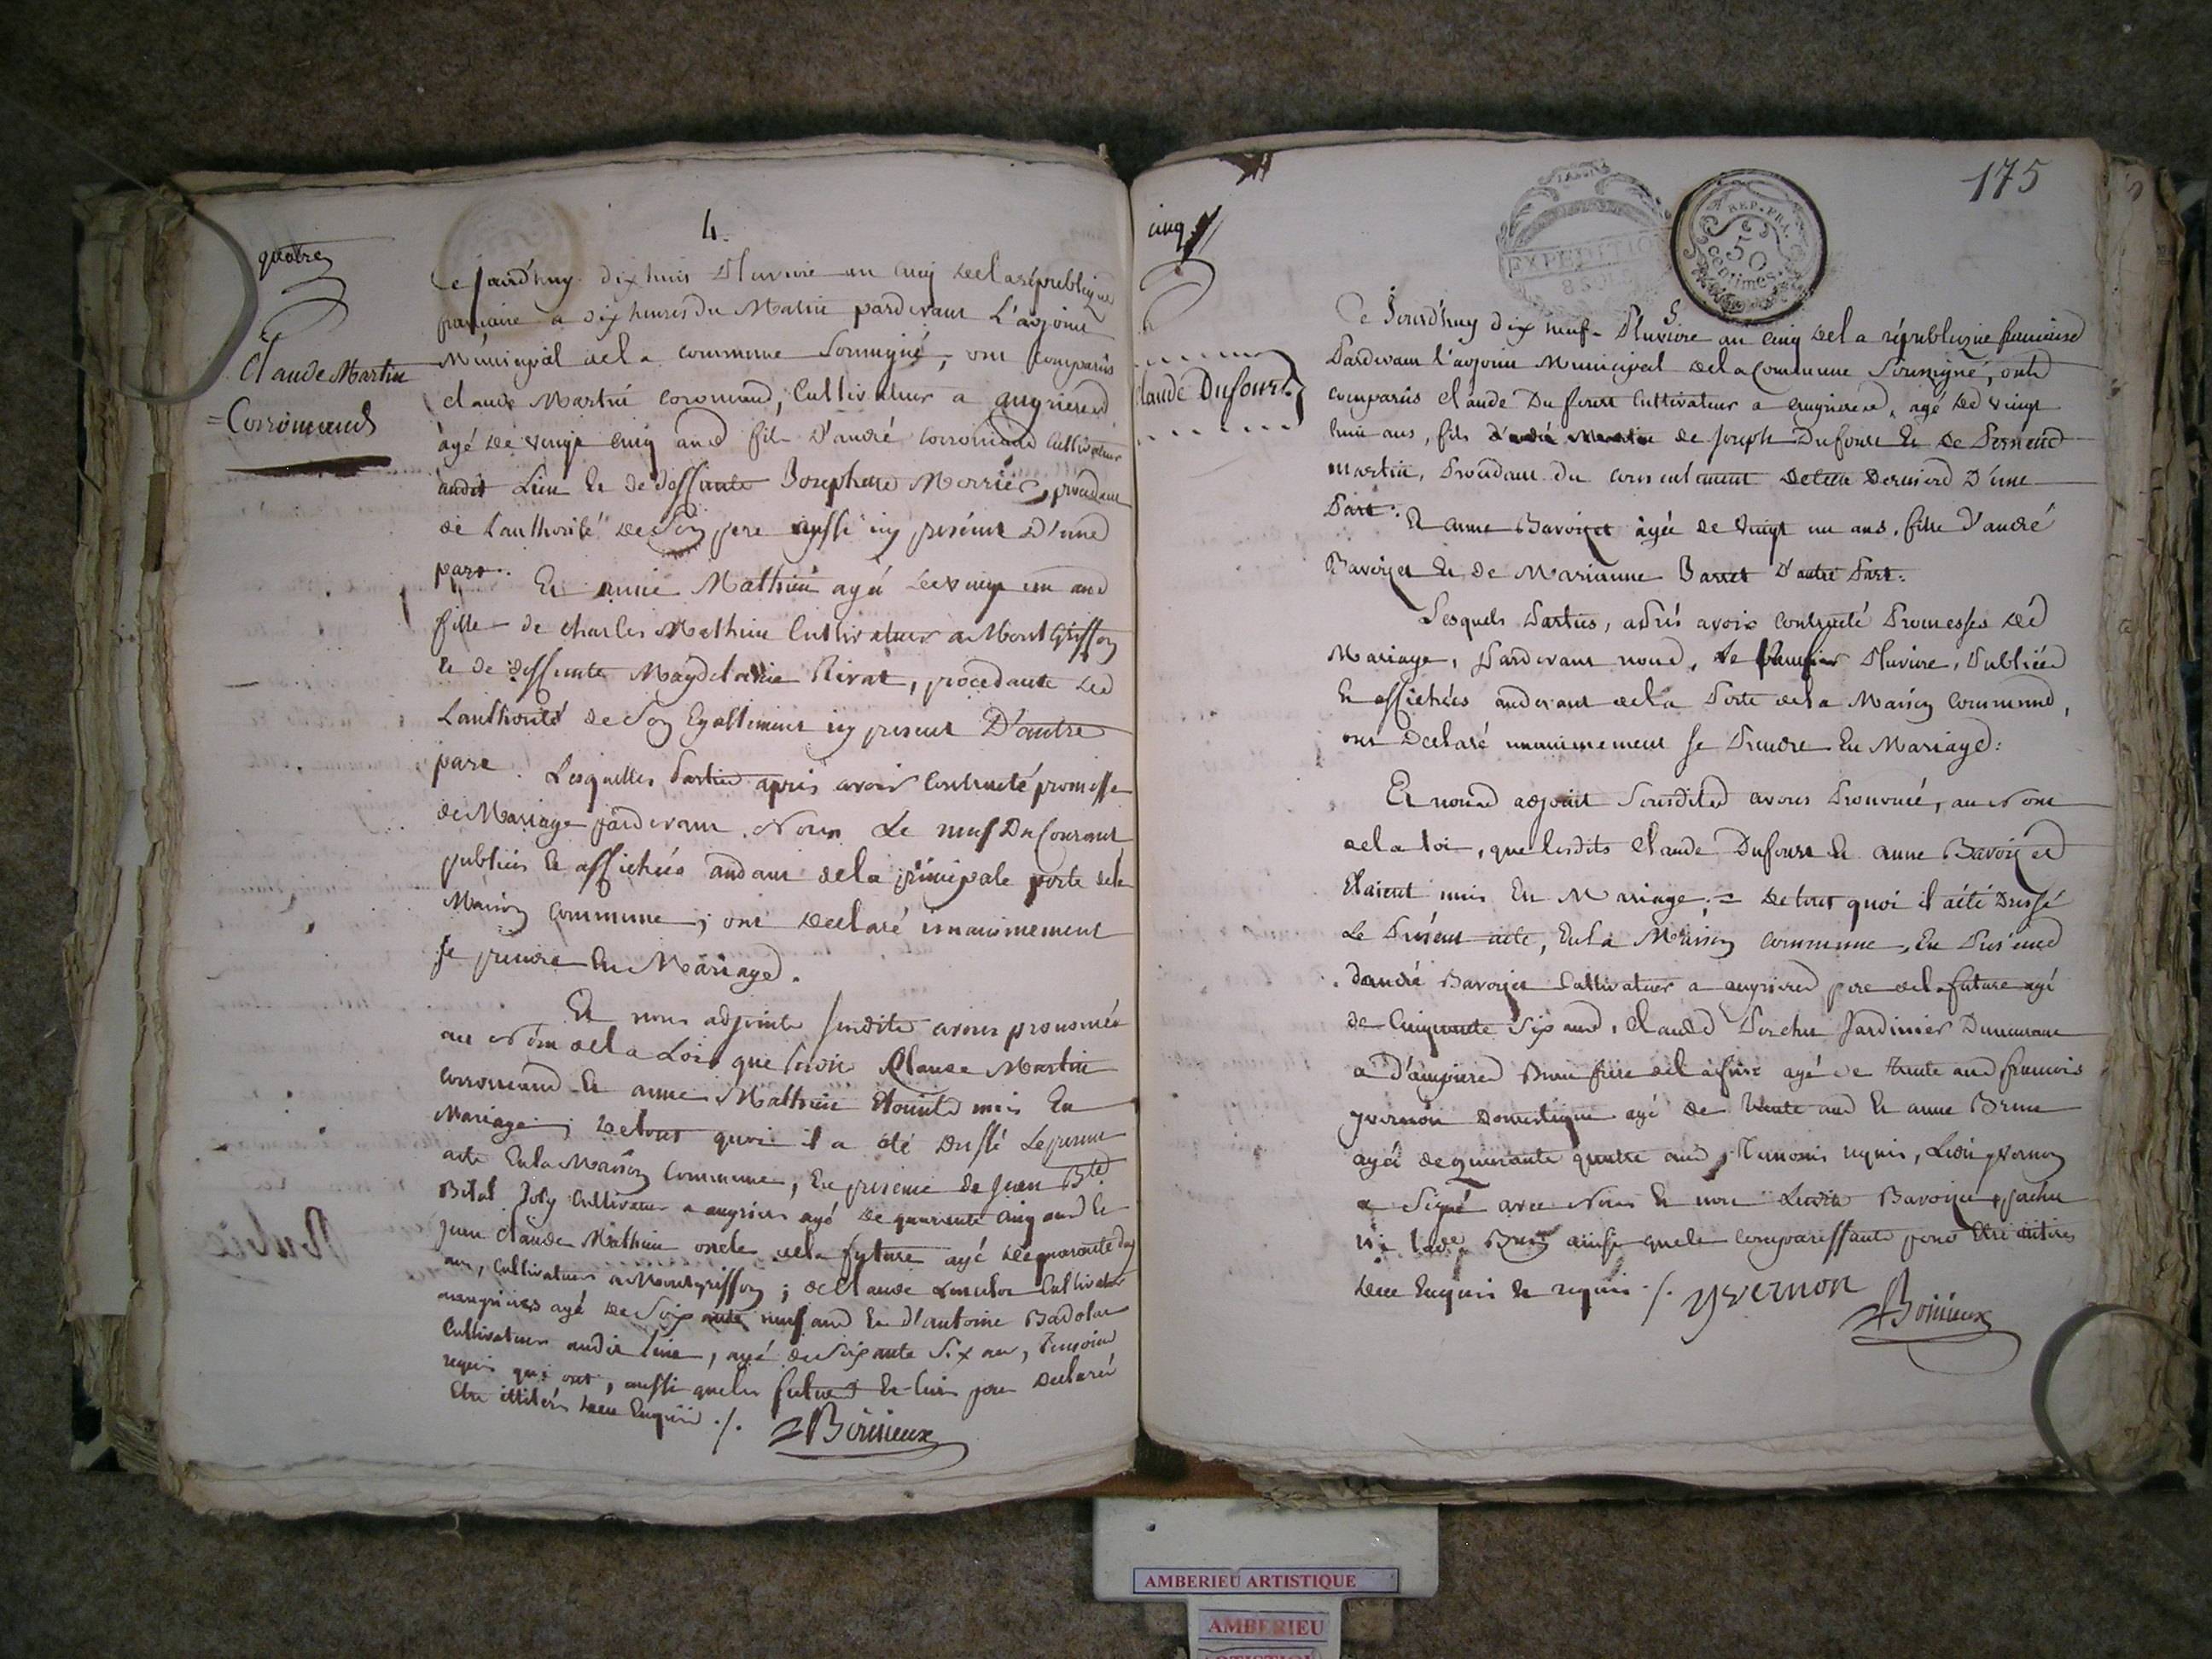 quatre
Claude Martin
Corromand
4.
Ce jourd'huy dix huit Pluviose an cinq de la république
francaise a dix heures du Matin pardevant L'adjoint
Municipal de la commune Soussigné, ont comparus
claude Martin Corromand, Cultivateur a
âgé de vingt cinq ans fils d'andré corromand Cultivateur
audit Lieu et de deffunte Josephte, procedant
de l'authorité de Son pere aussi icy présent D'une
part.. Et anne Mathieu agée de vingt un ans
fille de charles Mathieu Cultivateur a Montgriffon
et de deffunte Magdelaine Rivat, procedante de
L'authorité de Son Egallement icy present D'autre
part. Lesquelles Parties après avoir Contracté promesse
de Mariage pardevant Nous Le neuf Du Courant
publiées et affichées audevant de la principale porte de la
Maison Commune; ont Declaré unanimement
se prendre En Mariage.
Et nous adjoint susdit avons prononcés
au Nom de la Loi que lesdits Claude Martin
Corromand et anne Mathieu Etoient unis En
Mariage; De tout quoi il a été Dressé Le present
acte En la Maison Commune, En presence de Jean Bte
Joly Cultivateur a ayé de quarante cinq ans et
Jean Claude Mathieu oncle de la future ayé de quarante
ans, Cultivateur a Montgriffon; de Claude Cultivateur
ayé de Soixante neuf ans et d'antoine Badolat
Cultivateur audit lieu, ayé de Soixante Six ans, Temoins
requis qui ont, aussi que les futurs et leurs peres Declaré
Etre illitérés de ce Enquis ./. Bonieux
175
cinq
Claude Dufour
EXPEDITION
REP. FRA.
50
centimes.
5
Ce Jourd'huy dix neuf Pluviose an cinq de la république francaise
Pardevant l'adjoint Municipal de la Commune Soussigné, ont
comparus Claude Dufour Cultivateur a, agé de vingt
huit ans, fils d'andré Martin de Joseph Dufour et de
martin, Procedant du consentement de ces Derniers D'une
Part. Et anne Bavozet agée de vingt un ans, fille d'andré
Bavozet et de Marianne Barret D'autre Part.
Lesquels Parties, après avoir Contracté Promesses de
Mariage, Pardevant nous, le Pluviose, Publiées
et affichées audevant de la Porte de la Maison Commune,
ont Declaré unanimement se Prendre En Mariage:
Et nous adjoint Susdit avons Prononcé, au Nom
de la loi, que lesdits Claude Dufour et anne Bavozet
Etaient unis En Mariage. = De tout quoi il a été Dressé
Le Présent acte, En la Maison Commune, En Présence
d'andré Bavozet Cultivateur a pere de la future agé
de Cinquante Six ans, Claude Jardinier Demeurant
a ayé de trente ans francois
yvernon Domestique ayé de trente ans et anne Brun
ayée de quarante quatre ans, Temoins requis, Ledit yvernon
a Signé avec Nous et non Ledit Bavozet,
ni lad.e Brun ainsi que les comparissants pour Etre illitérés
de ce Enquis et requis ./. yvernon
Bonieux
AMBERIEU ARTISTIQUE
AMBERIEU
ARTISTIQUE